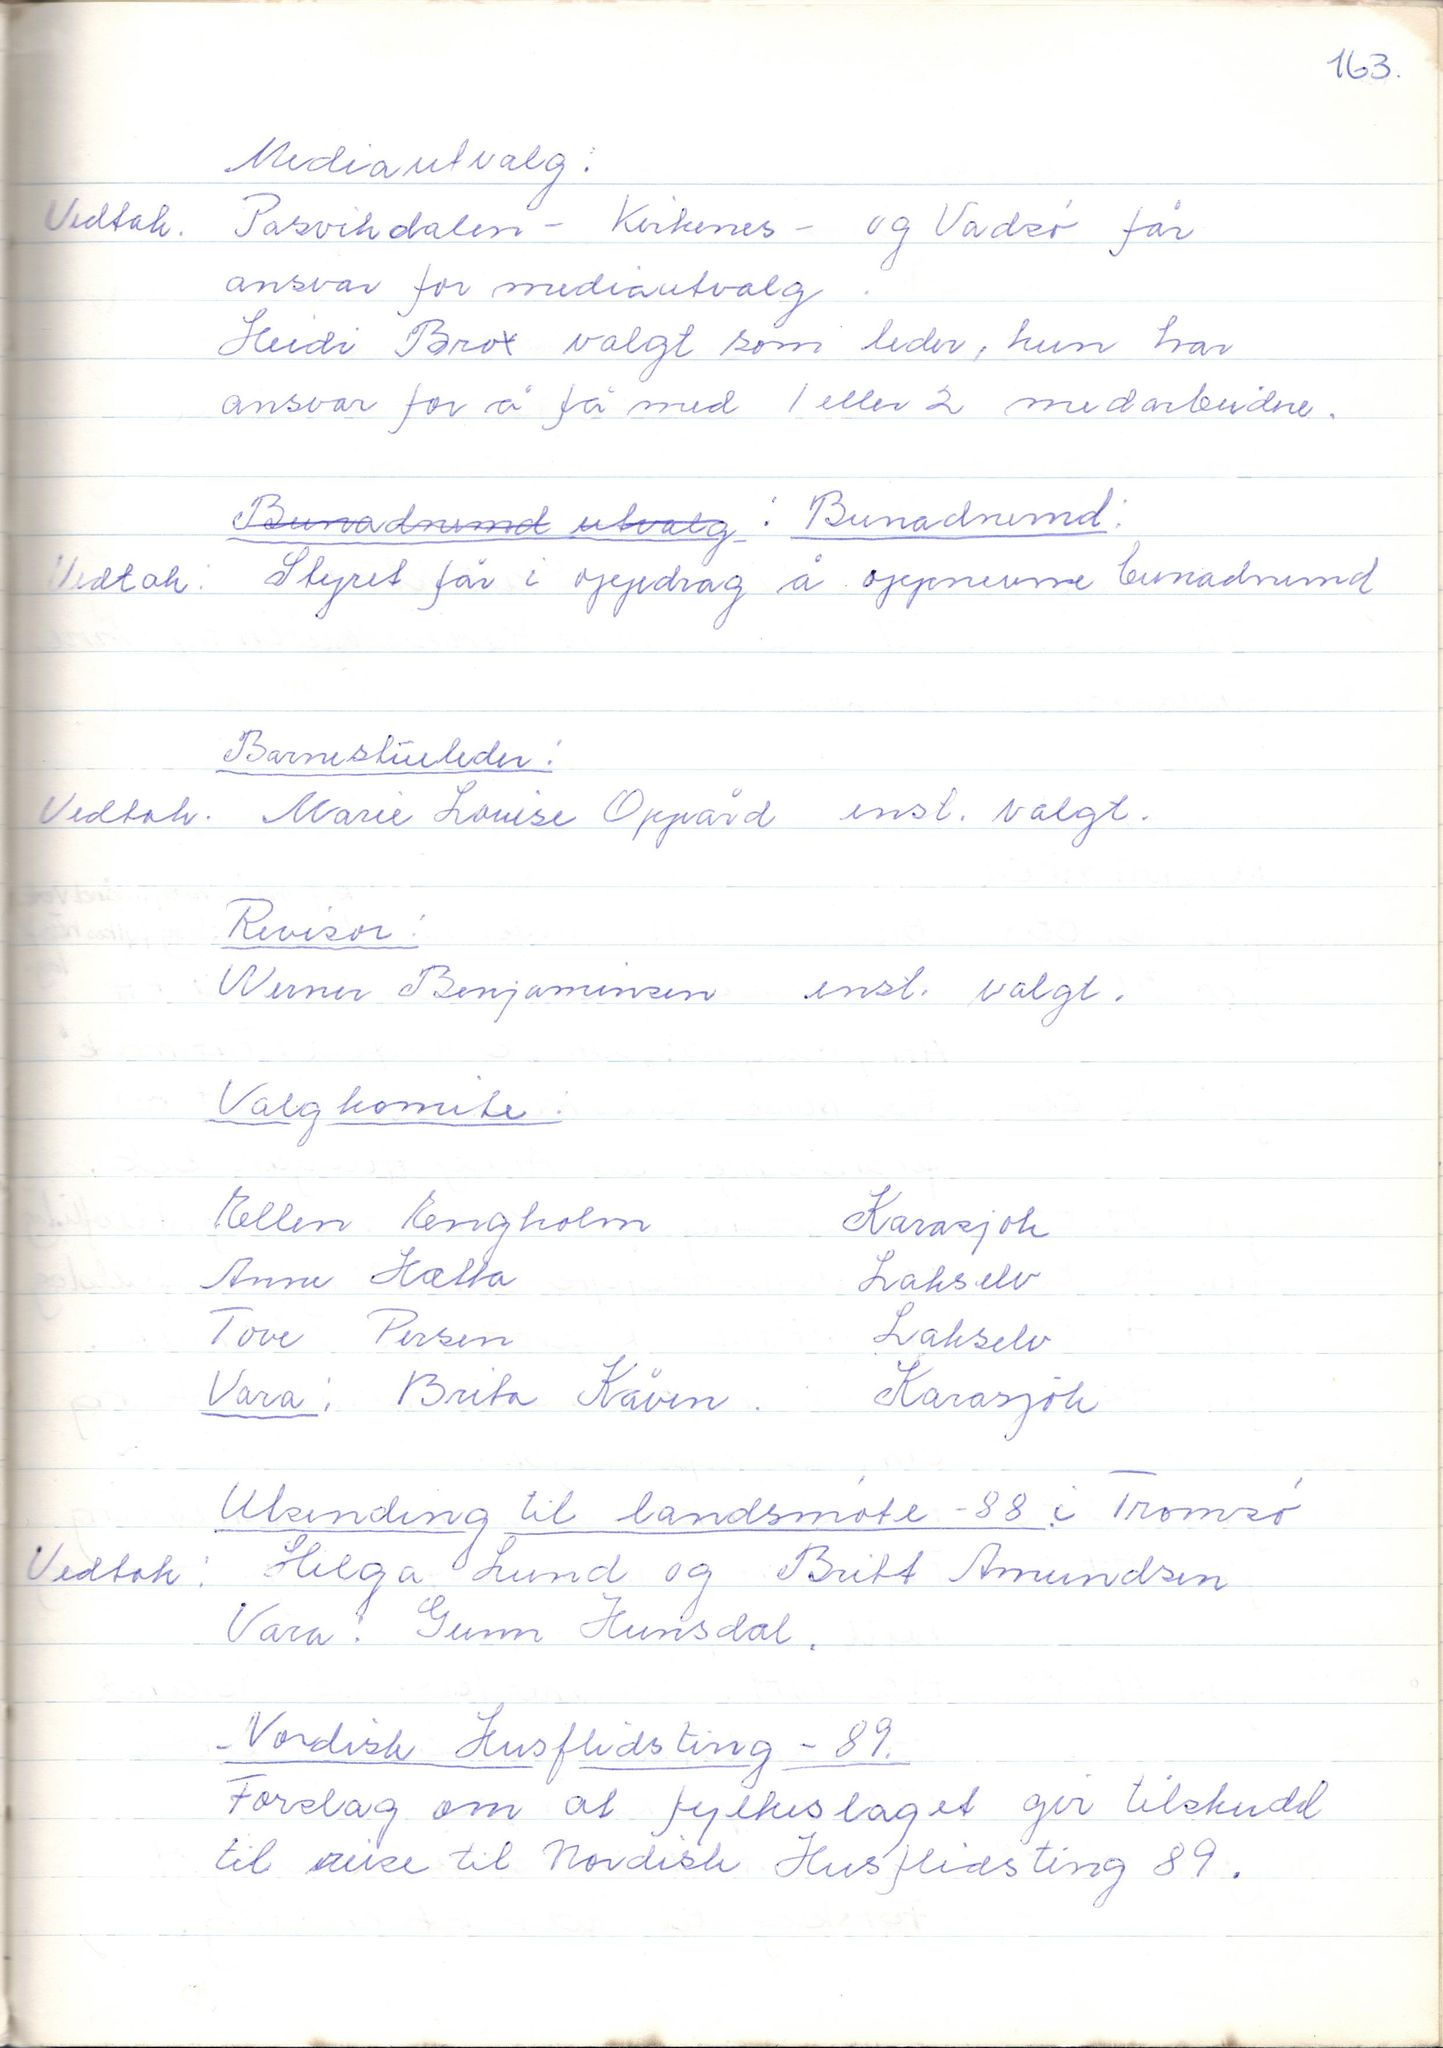 163.
Mediautvalg:
Vedtak. Pasvikdalen - Kirkenes - og Vadsø får
ansvar for mediautvalg.
Heidi Brox valgt som leder, hun har
ansvar for å få med 1 eller 2 medarbeidre.
Bunadnemd utvalg: Bunadnemd:
Vedtak: Styret får i oppdrag å oppnevne bunadnemd
Barnestueleder:
Vedtak. Marie Louise Oppård enst. valgt.
Revisor:
Werner Benjaminsen enst. valgt.
Valgkomite:
Ellen Engholm Karasjok
Anne Hætta Lakselv
Tove Persen Lakselv
Vara: Brita Kåven. Karasjok
Utsending til landsmøte -88 i Tromsø
Vedtak: Helga Lund og Britt Amundsen
Vara: Gunn Hunsdal.
Nordisk Husflidsting - 89.
Forslag om at fylkeslaget gir tilskudd
til reise til Nordisk Husflidsting 89.